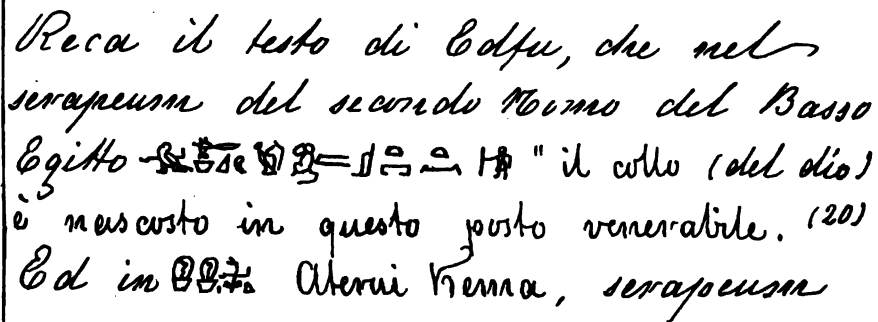 Reca il testo di Edfu, che nel
serapeum del secondo Nomo del Basso
Egitto " il collo (del dio)
è nascosto in questo posto venerabile. (20)
Ed in Aterui Kema, serapeum